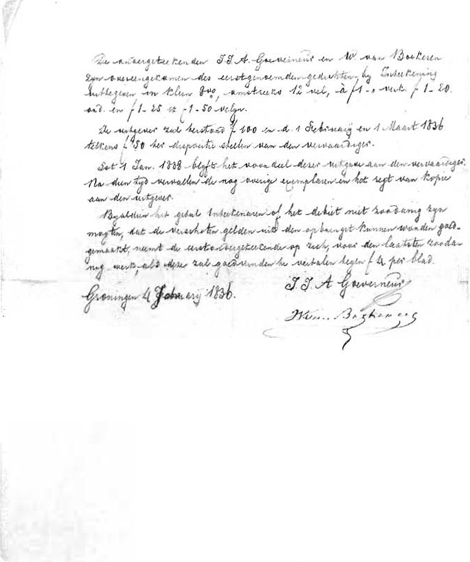 De ondergeteekenden J. J. A. Goeverneur en W van Boekeren
zyn overeengekomen des eerstgenoemden gedichten, by Inteekening
uittegeven in klein 8vo, omstreeks 12 vel, à f 1-
oud en f 1-25 f 1-50 velyn.
De uitgever zal terstond f 100 en d 1 February en 1 Maart 1836
telkens f 50 ter dispositie stellen van den vervaardiger.
Tot 1 Jan. 1838 blyft het voordeel dezer uitgave aan den vervaardiger.
Na dien tyd vervallen de nog overige exemplaren en het regt van kopie
aan den uitgever.
Byaldien het getal Inteekenaren of het debiet niet zoodanig zyn
mogten, dat de verschoten gelden uit den opbrengst kunnen worden goed-
gemaakt, neemt de eerstondergeteekende op zich, voor den laatsten zooda-
nig werk, als deze zal goedvinden te vertalen tegen f 4 per blad.
Groningen 4 1836. J. J. A Goeverneur